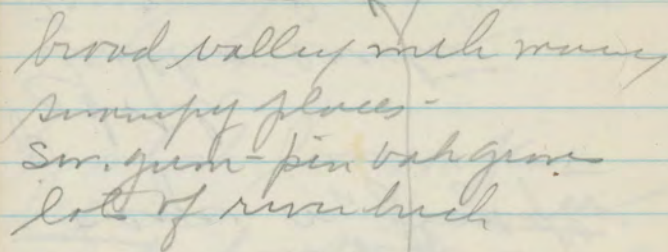 broad valley with many
swampy places -
Sw. gum - pin oak grove
lots of river birch